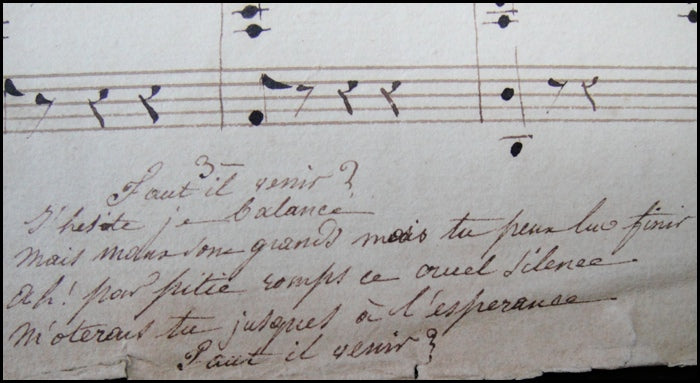 3
Faut il venir ?
J'hesite je balance
Mais maux sont grands mais tu peux les finir
Ah ! par pitié romps ce cruel silence
M'oterais tu jusques à l'esperance
Faut il venir ?